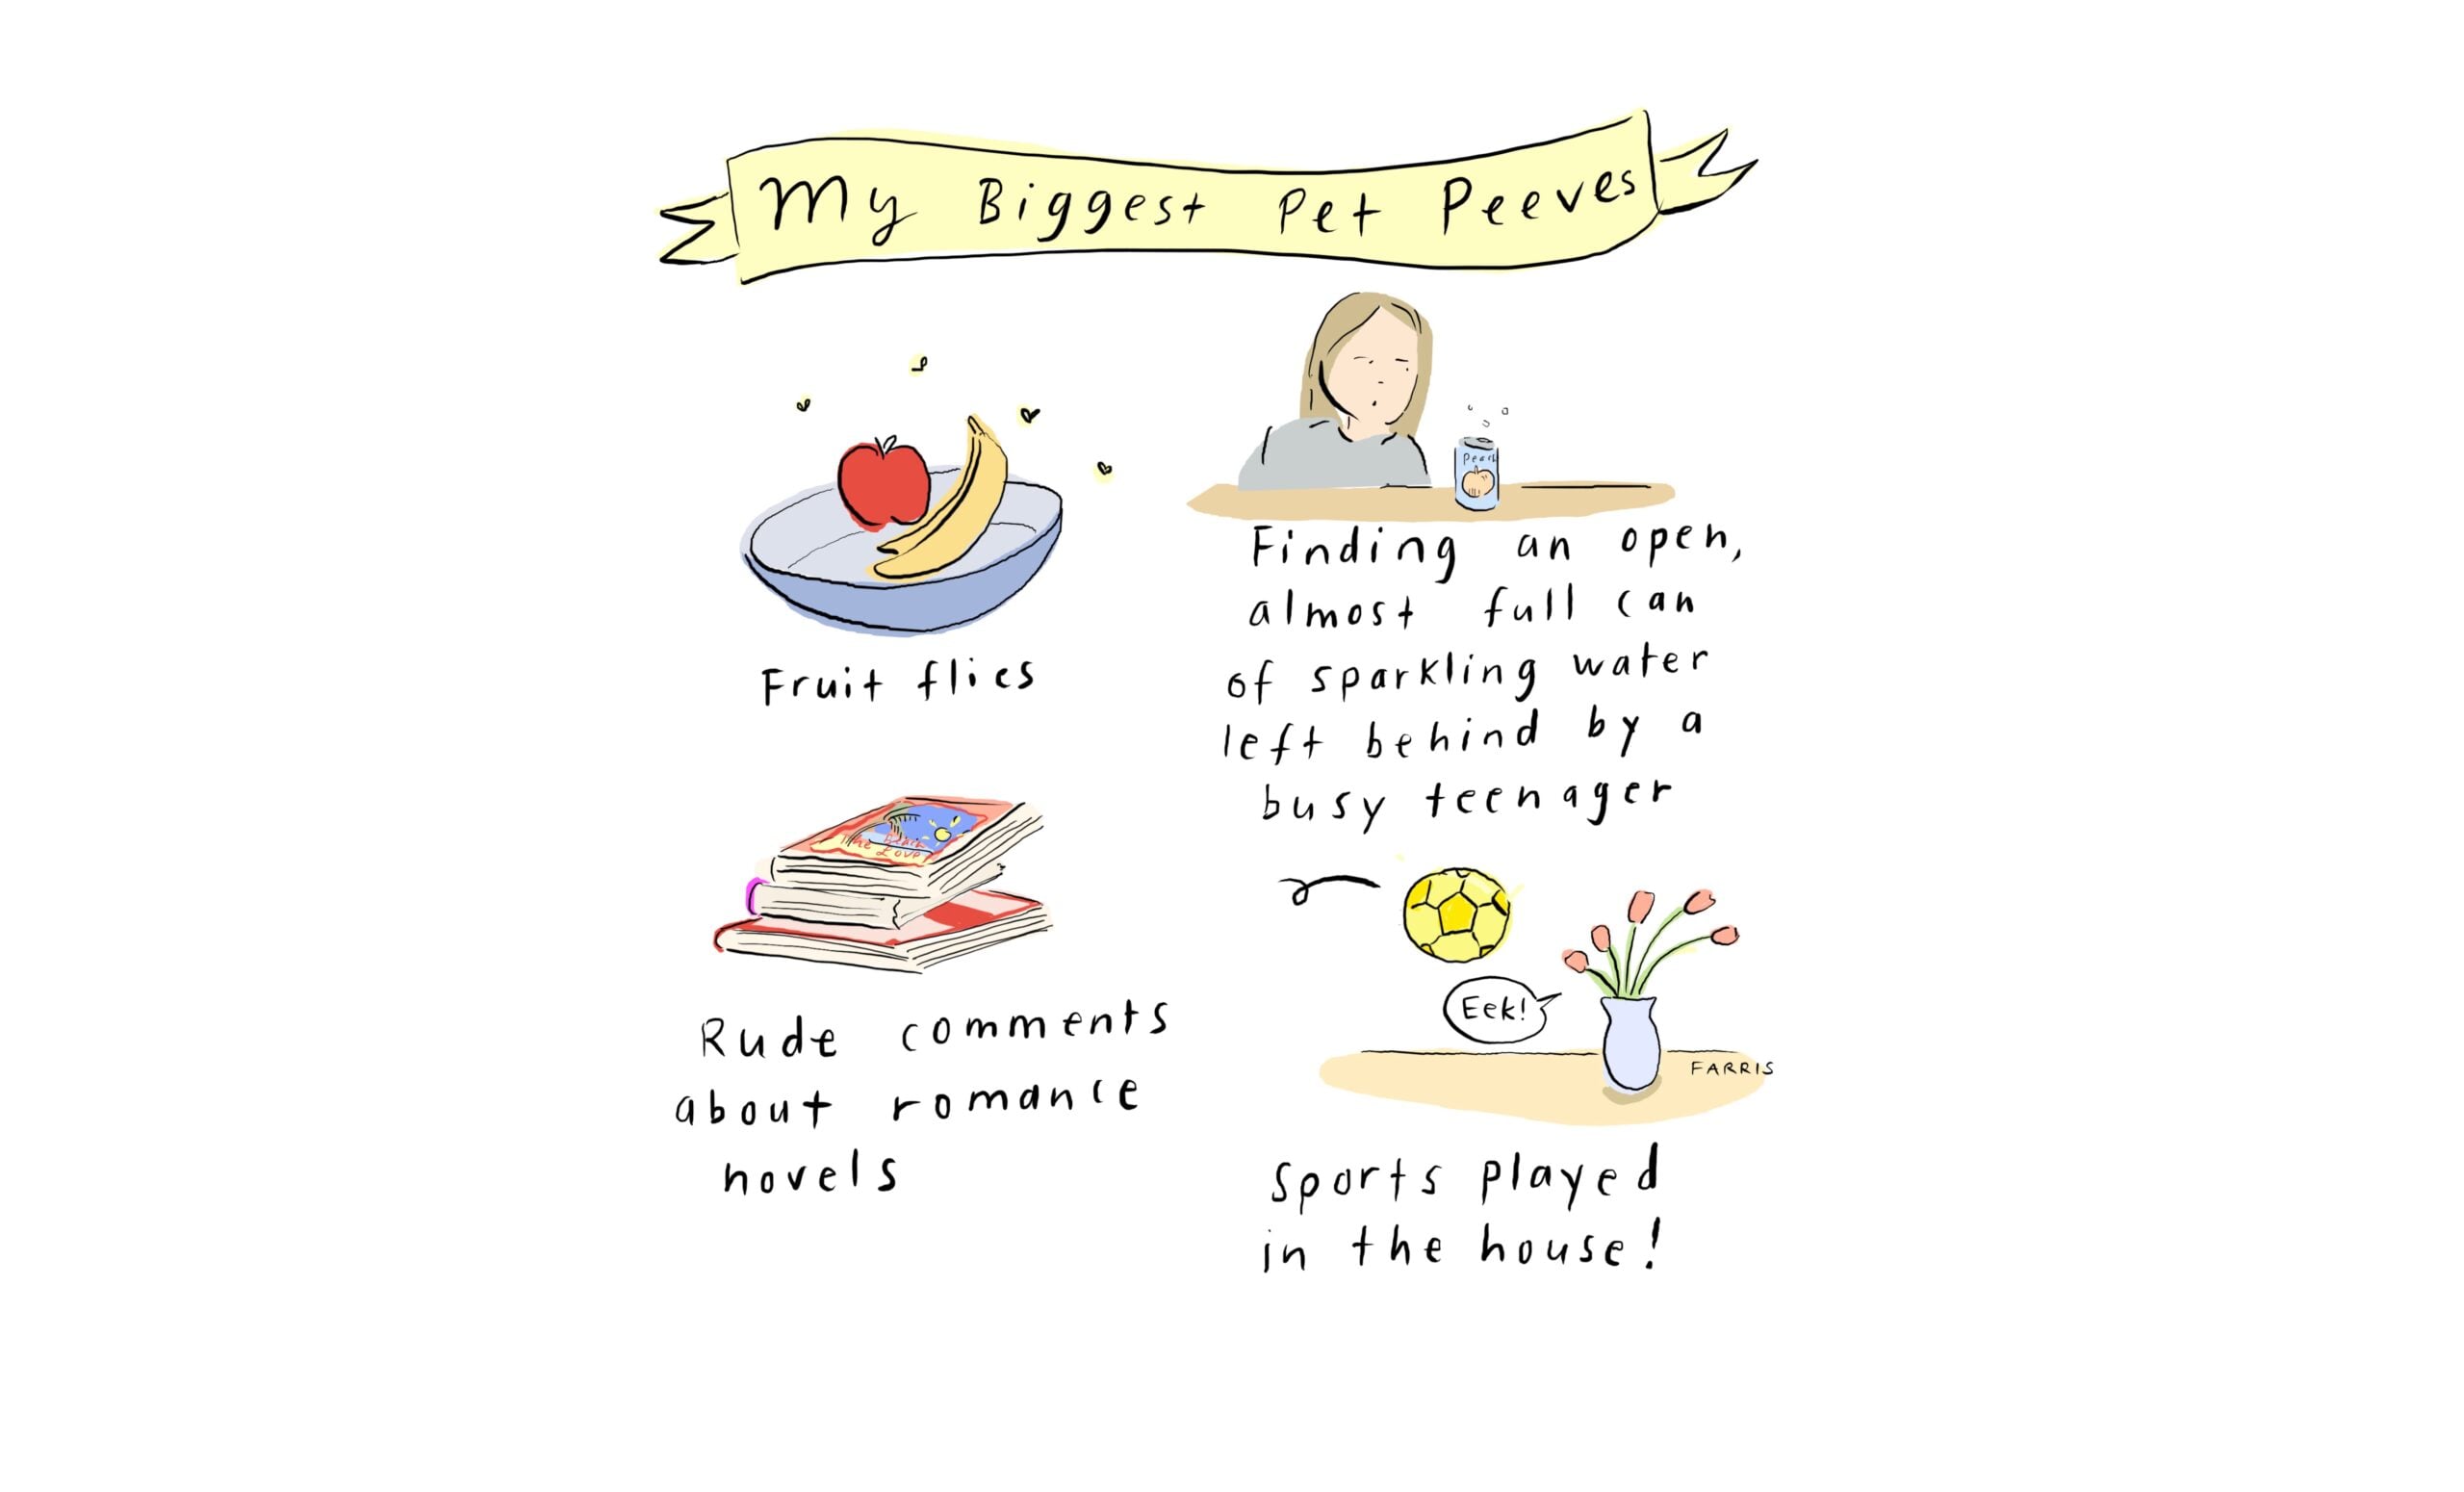 My Biggest Pet Peeves
Fruit flies
Peach
Finding an open,
almost full can
of sparkling water
left behind by a
busy teenager
The Beach
Love
Rude comments
about romance
novels
Eek!
FARRIS
Sports played
in the house!